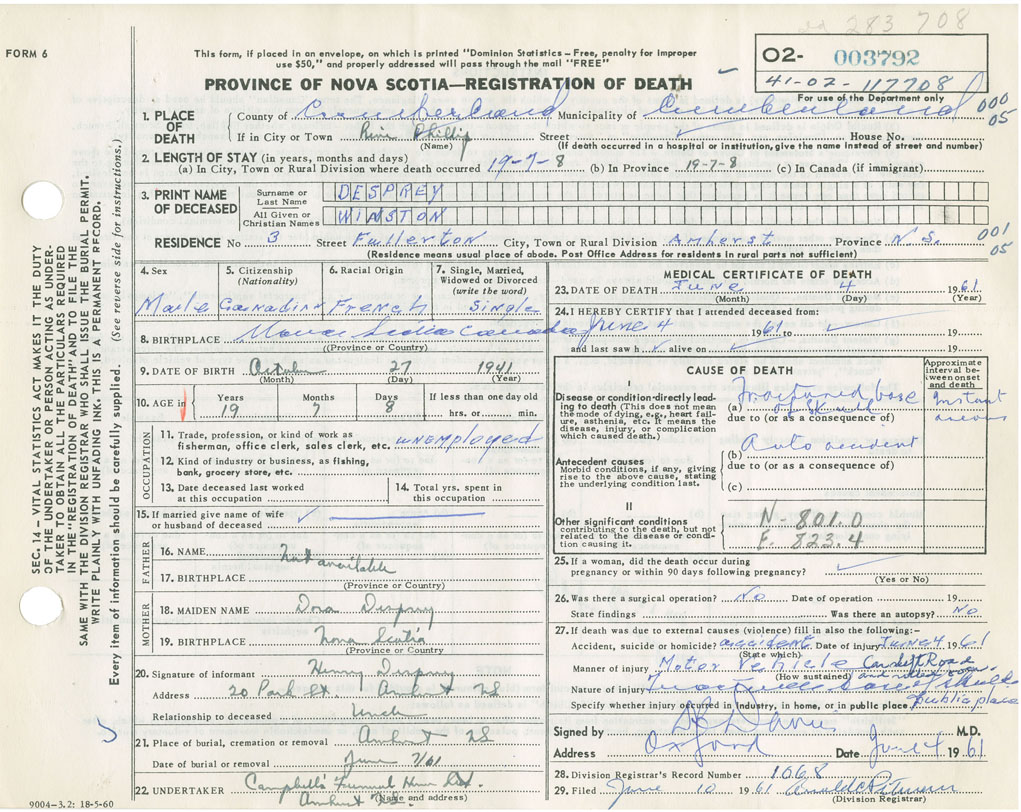 283 708
FORM 6
This form, if placed in an envelope, on which is printed "Dominion Statistics – Free, penalty for improper
use $50," and properly addressed will pass through the mail "FREE"
O2- 003792
41-02-117708
For use of the Department only
PROVINCE OF NOVA SCOTIA—REGISTRATION OF DEATH
000
05
1. PLACE OF DEATH
County of Cumberland Municipality of Cumberland
If in City or Town River Phillip Street House No.
(Name) (If death occurred in a hospital or institution, give the name instead of street and number)
2. LENGTH OF STAY (in years, months and days)
(a) In City, Town or Rural Division where death occurred 19-7-8 (b) In Province 19-7-8 (c) In Canada (if immigrant)
3. PRINT NAME OF DECEASED
Surname or Last Name DESPREY
All Given or Christian Names WINSTON
RESIDENCE No 3 Street Fullerton City, Town or Rural Division Amherst Province N.S.
001
05
(Residence means usual place of abode. Post Office Address for residents in rural parts not sufficient)
4. Sex Male
5. Citizenship (Nationality) Canadian
6. Racial Origin French
7. Single, Married, Widowed or Divorced (write the word) Single
8. BIRTHPLACE Nova Scotia Canada
(Province or Country)
9. DATE OF BIRTH October 27 1941
(Month) (Day) (Year)
10. AGE in Years Months Days If less than one day old
19 7 8 hrs. or min.
OCCUPATION
11. Trade, profession, or kind of work as
fisherman, office clerk, sales clerk, etc. unemployed
12. Kind of industry or business, as fishing,
bank, grocery store, etc.
13. Date deceased last worked
at this occupation
14. Total yrs. spent in
this occupation
15. If married give name of wife
or husband of deceased
FATHER
16. NAME Not available
17. BIRTHPLACE
(Province or Country)
MOTHER
18. MAIDEN NAME Dora Desprey
19. BIRTHPLACE Nova Scotia
(Province or Country
20. Signature of informant Henry Desprey
Address 20 Park St Amherst NS
Relationship to deceased Uncle
21. Place of burial, cremation or removal Amherst NS
Date of burial or removal June 7/61
22. UNDERTAKER Campbell's Funeral Home Ltd.
Amherst NS.
(Name and address)
9004-3.2: 18-5-60
MEDICAL CERTIFICATE OF DEATH
23. DATE OF DEATH June 4 1961
(Month) (Day) (Year)
24. I HEREBY CERTIFY that I attended deceased from:
June 4 1961 to 19
and last saw h alive on 19
CAUSE OF DEATH
Approximate
interval be-
tween onset
and death
I
Disease or condition directly lead-
ing to death (This does not mean
the mode of dying, e.g., heart fail-
ure, asthenia, etc. It means the
disease, injury, or complication
which caused death.)
(a) Fractured base
of skull
due to (or as a consequence of)
Instant
aneous
Antecedent causes
Morbid conditions, if any, giving
rise to the above cause, stating
the underlying condition last.
(b) Auto accident
due to (or as a consequence of)
(c)
II
Other significant conditions
contributing to the death, but not
related to the disease or condi-
tion causing it.
N-801.0
E. 823.4
25. If a woman, did the death occur during
pregnancy or within 90 days following pregnancy?
(Yes or No)
26. Was there a surgical operation? No Date of operation 19
State findings Was there an autopsy? No
27. If death was due to external causes (violence) fill in also the following:–
Accident, suicide or homicide? accident Date of injury June 4 1961
(State which)
Manner of injury Motor Vehicle Car left Road
(How sustained) and rolled over
Nature of injury Fractured base of Skull
Specify whether injury occurred in Industry, in home, or in public place public place
Signed by M.D.
Address Oxford Date June 4 1961
28. Division Registrar's Record Number 1068
29. Filed June 10 1961
(Division Registrar)
SEC. 14 – VITAL STATISTICS ACT MAKES IT THE DUTY
OF THE UNDERTAKER OR PERSON ACTING AS UNDER-
TAKER TO OBTAIN ALL THE PARTICULARS REQUIRED
IN THE "REGISTRATION OF DEATH" AND TO FILE THE
SAME WITH THE DIVISION REGISTRAR WHO SHALL ISSUE THE BURIAL PERMIT.
WRITE PLAINLY WITH UNFADING INK. THIS IS A PERMANENT RECORD.
Every item of information should be carefully supplied. (See reverse side for instructions.)